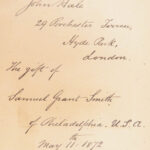 John Hale
29 Porchester Terrace,
Hyde Park,
London.
The gift of
Samuel Grant Smith
of Philadelphia, U.S.A
May 11.th 1872